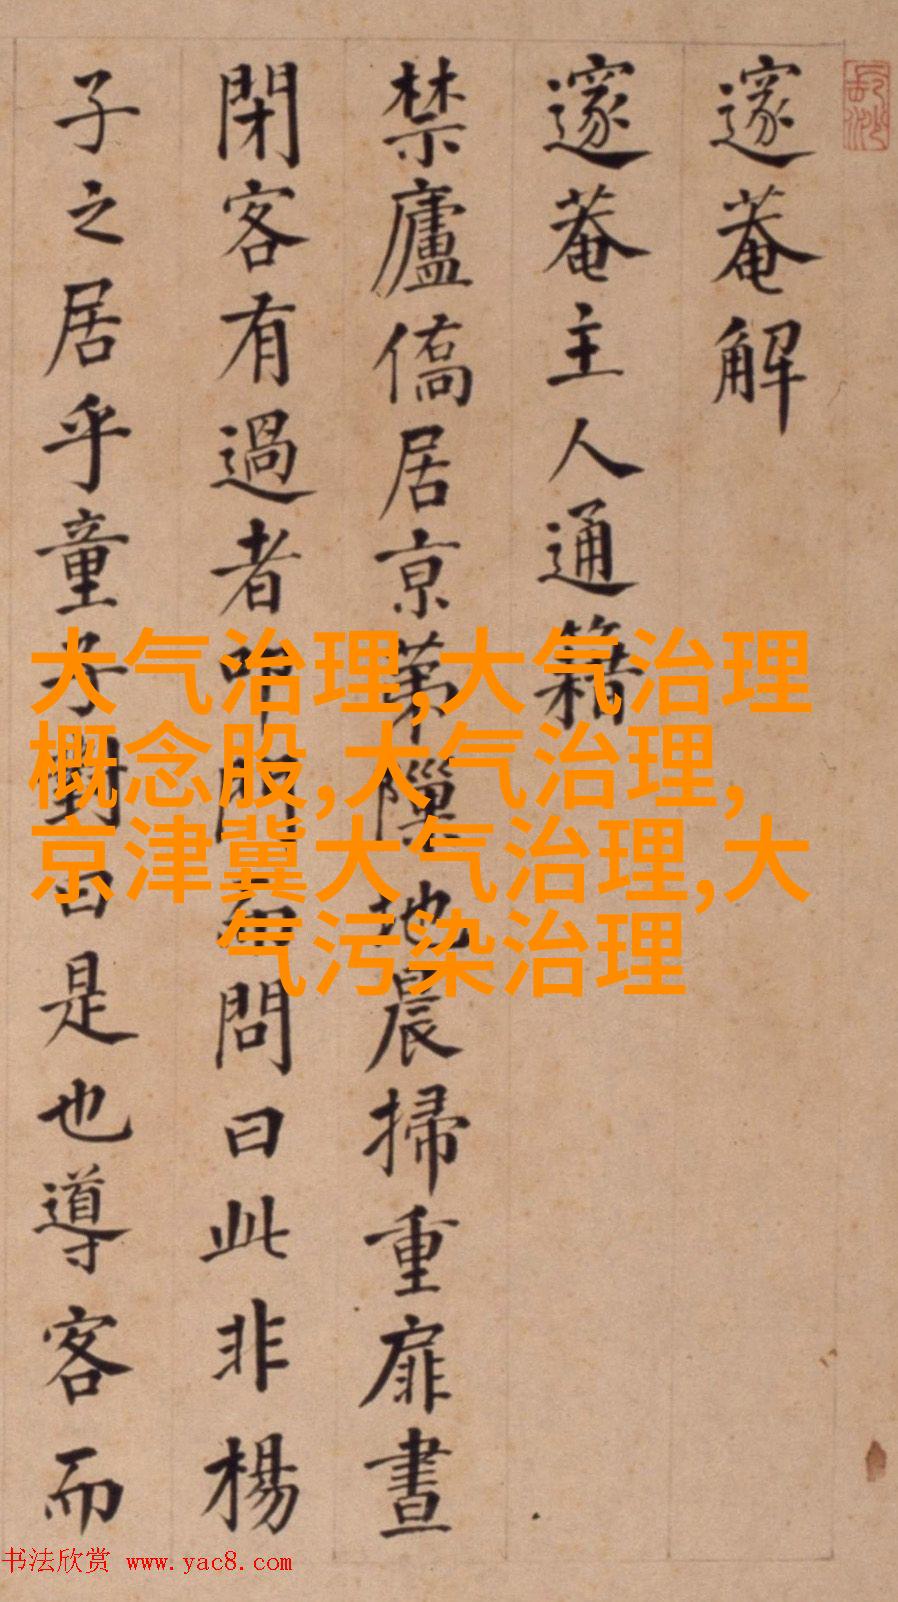 邃菴解
邃菴主人通籍
禁廬僑居京第隟地晨掃重扉晝
閉客有過者叩門問曰此非楊
子之居乎童子對曰是也導客而
大气治理,大气治理
概念股,大气治理,
京津冀大气治理,大
气污染治理
书法欣赏 www.yac8.com